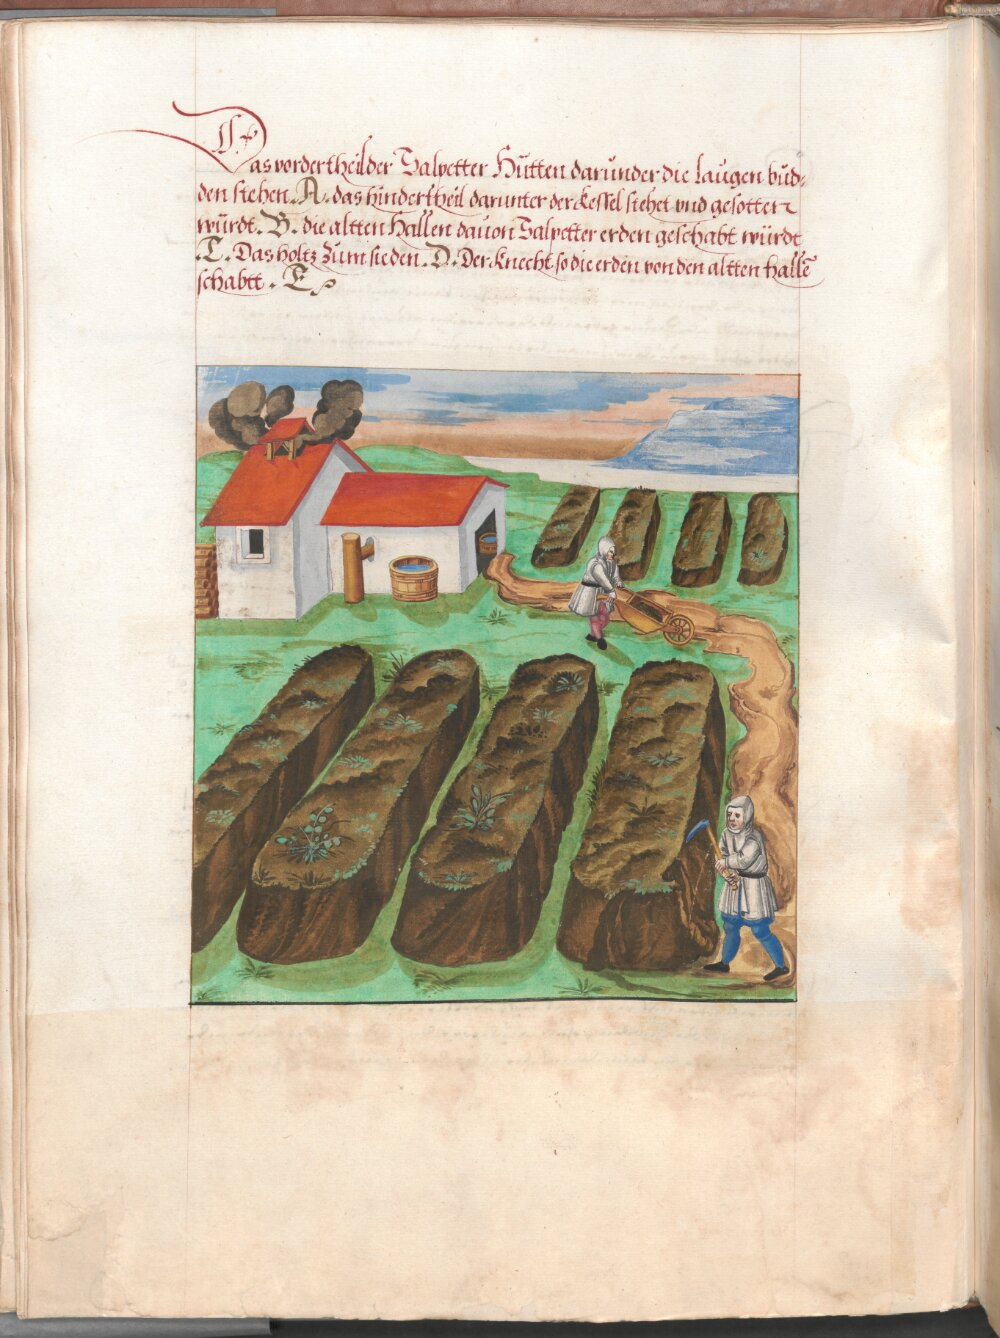 Das vordertheil der Salpetter Hütten darunder die laugen büd-
den stehen. A. das hindertheil darunter der Kessel stehet vnd gesotten
würdt. B. die altten Hallen dauon Salpetter erden geschabt würdt
.C. Das holtz zum sieden. D. Der Knecht so die erden von den altten halle
schabtt. E